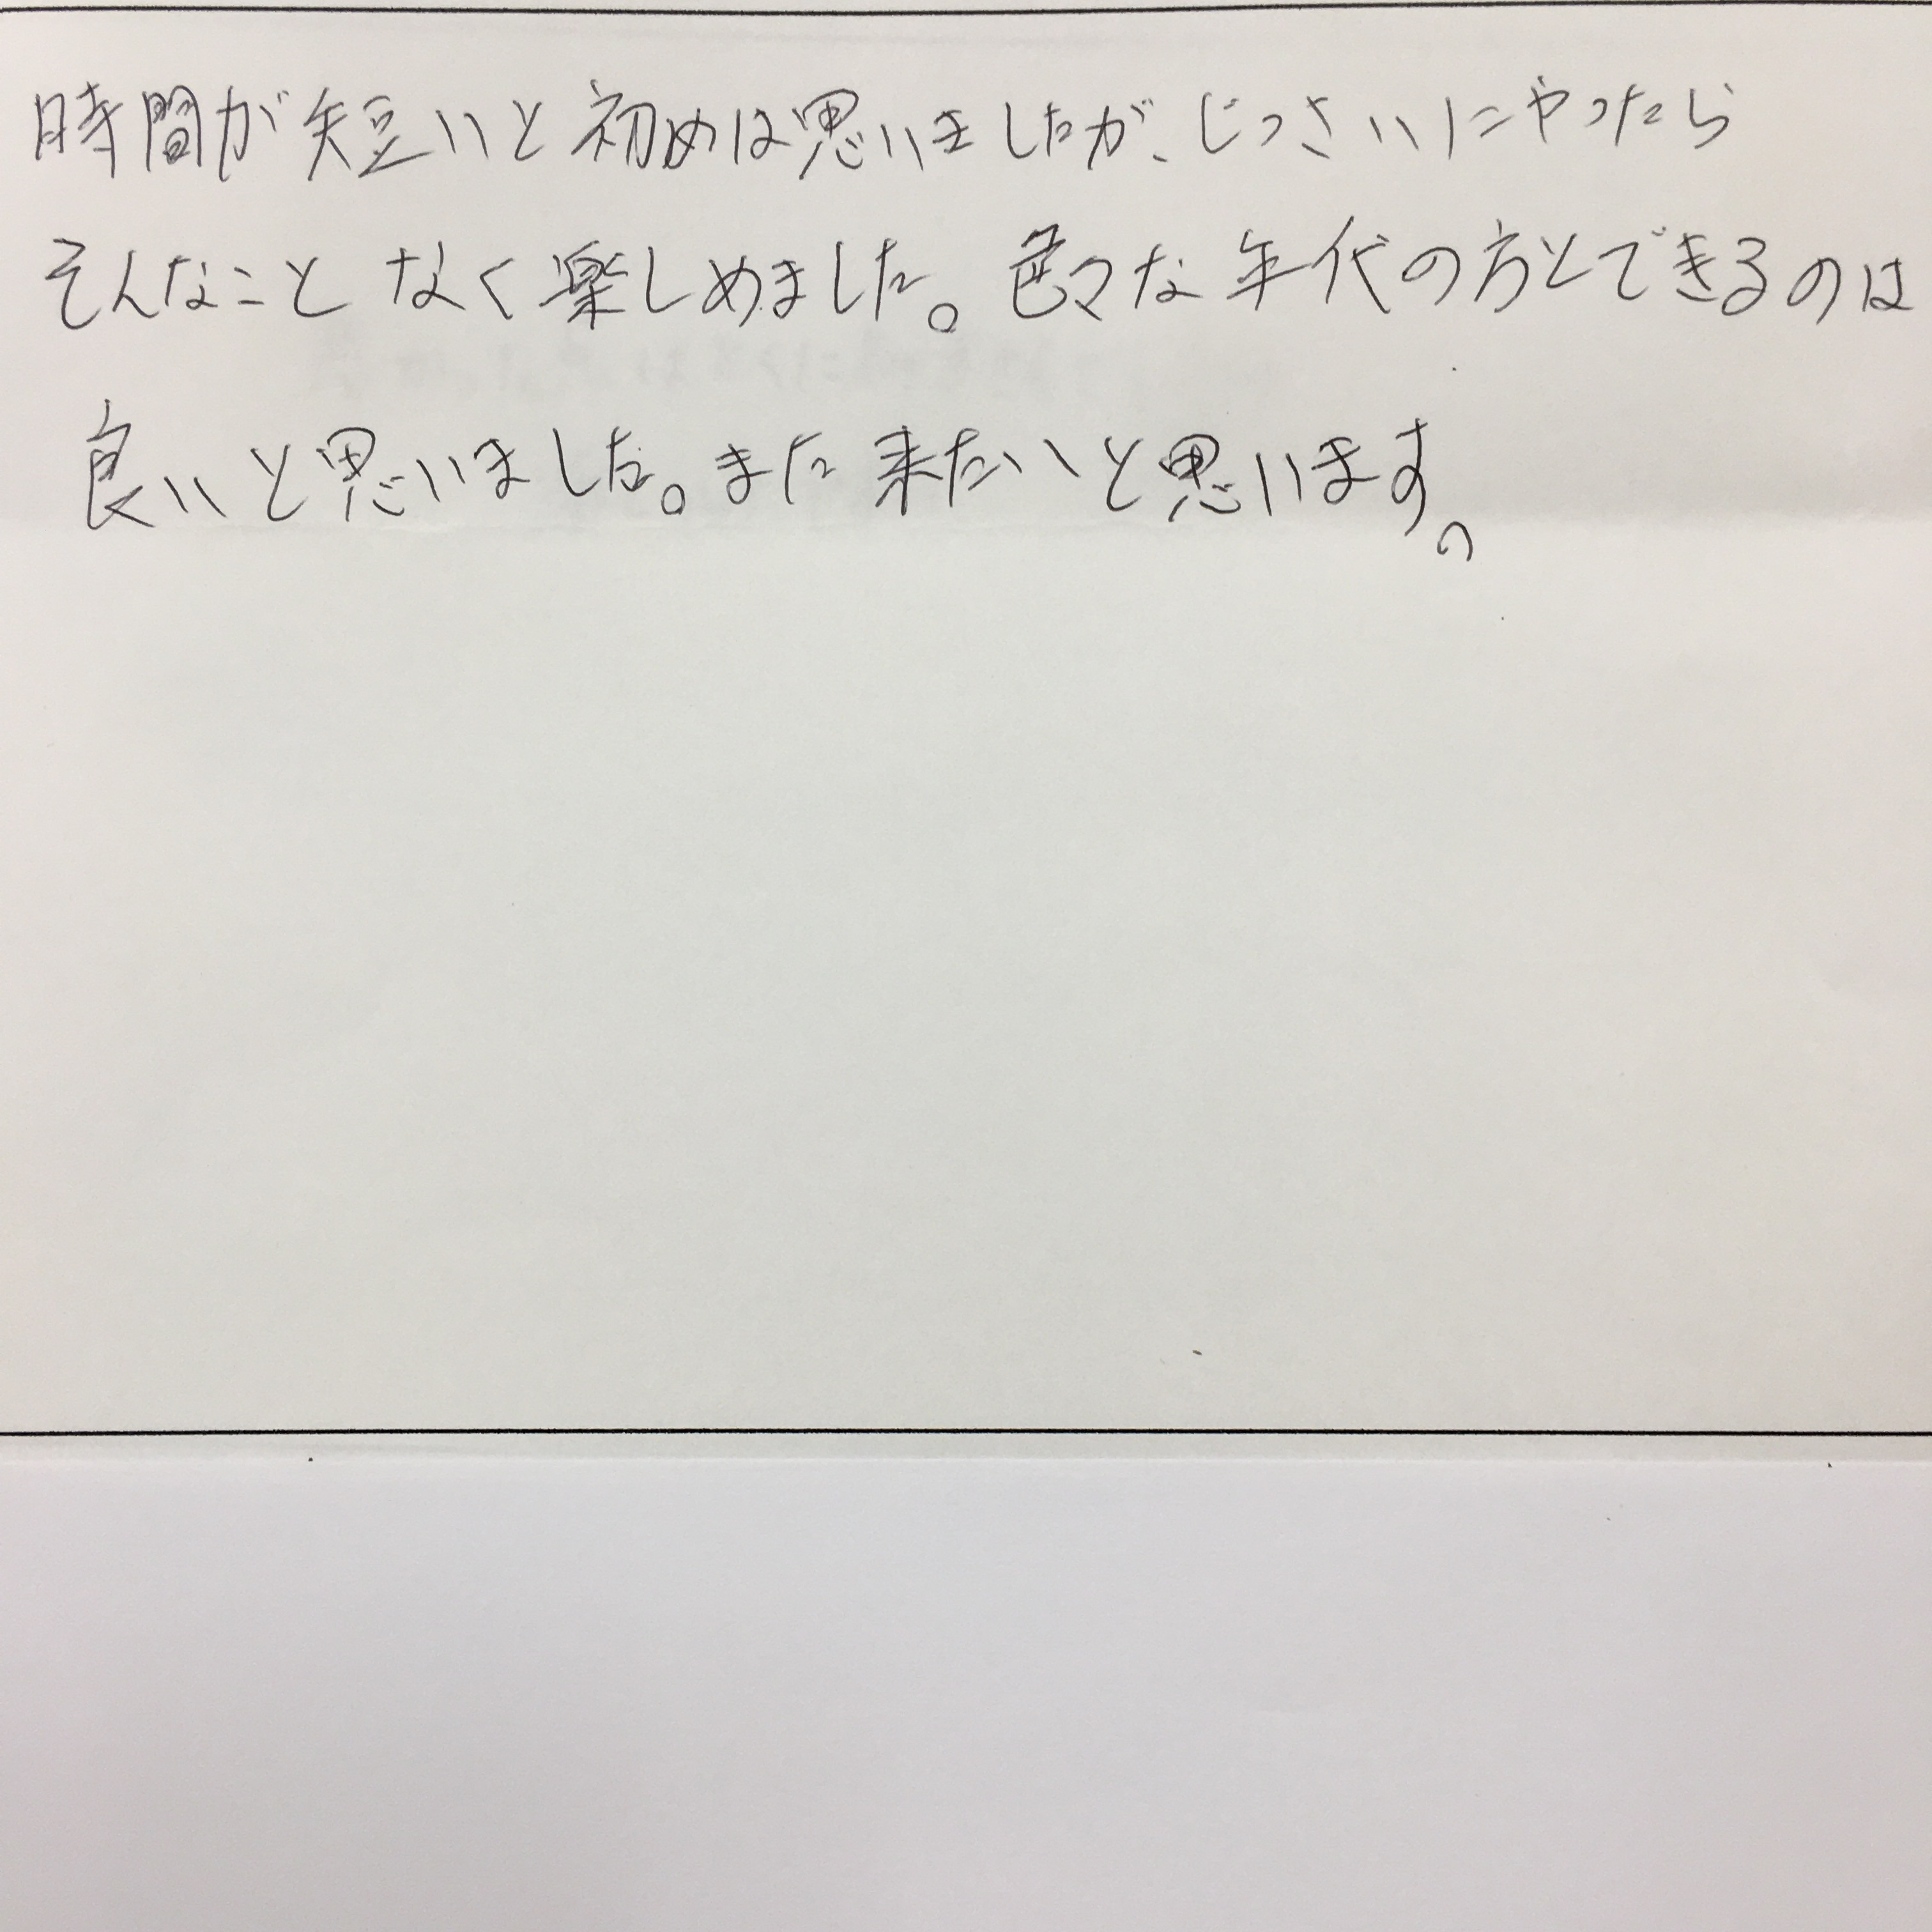 時間が短いと初めは思いましたが、じっさいにやったら
そんなことなく楽しめました。色々な年代の方とできるのは
良いと思いました。また来たいと思います。